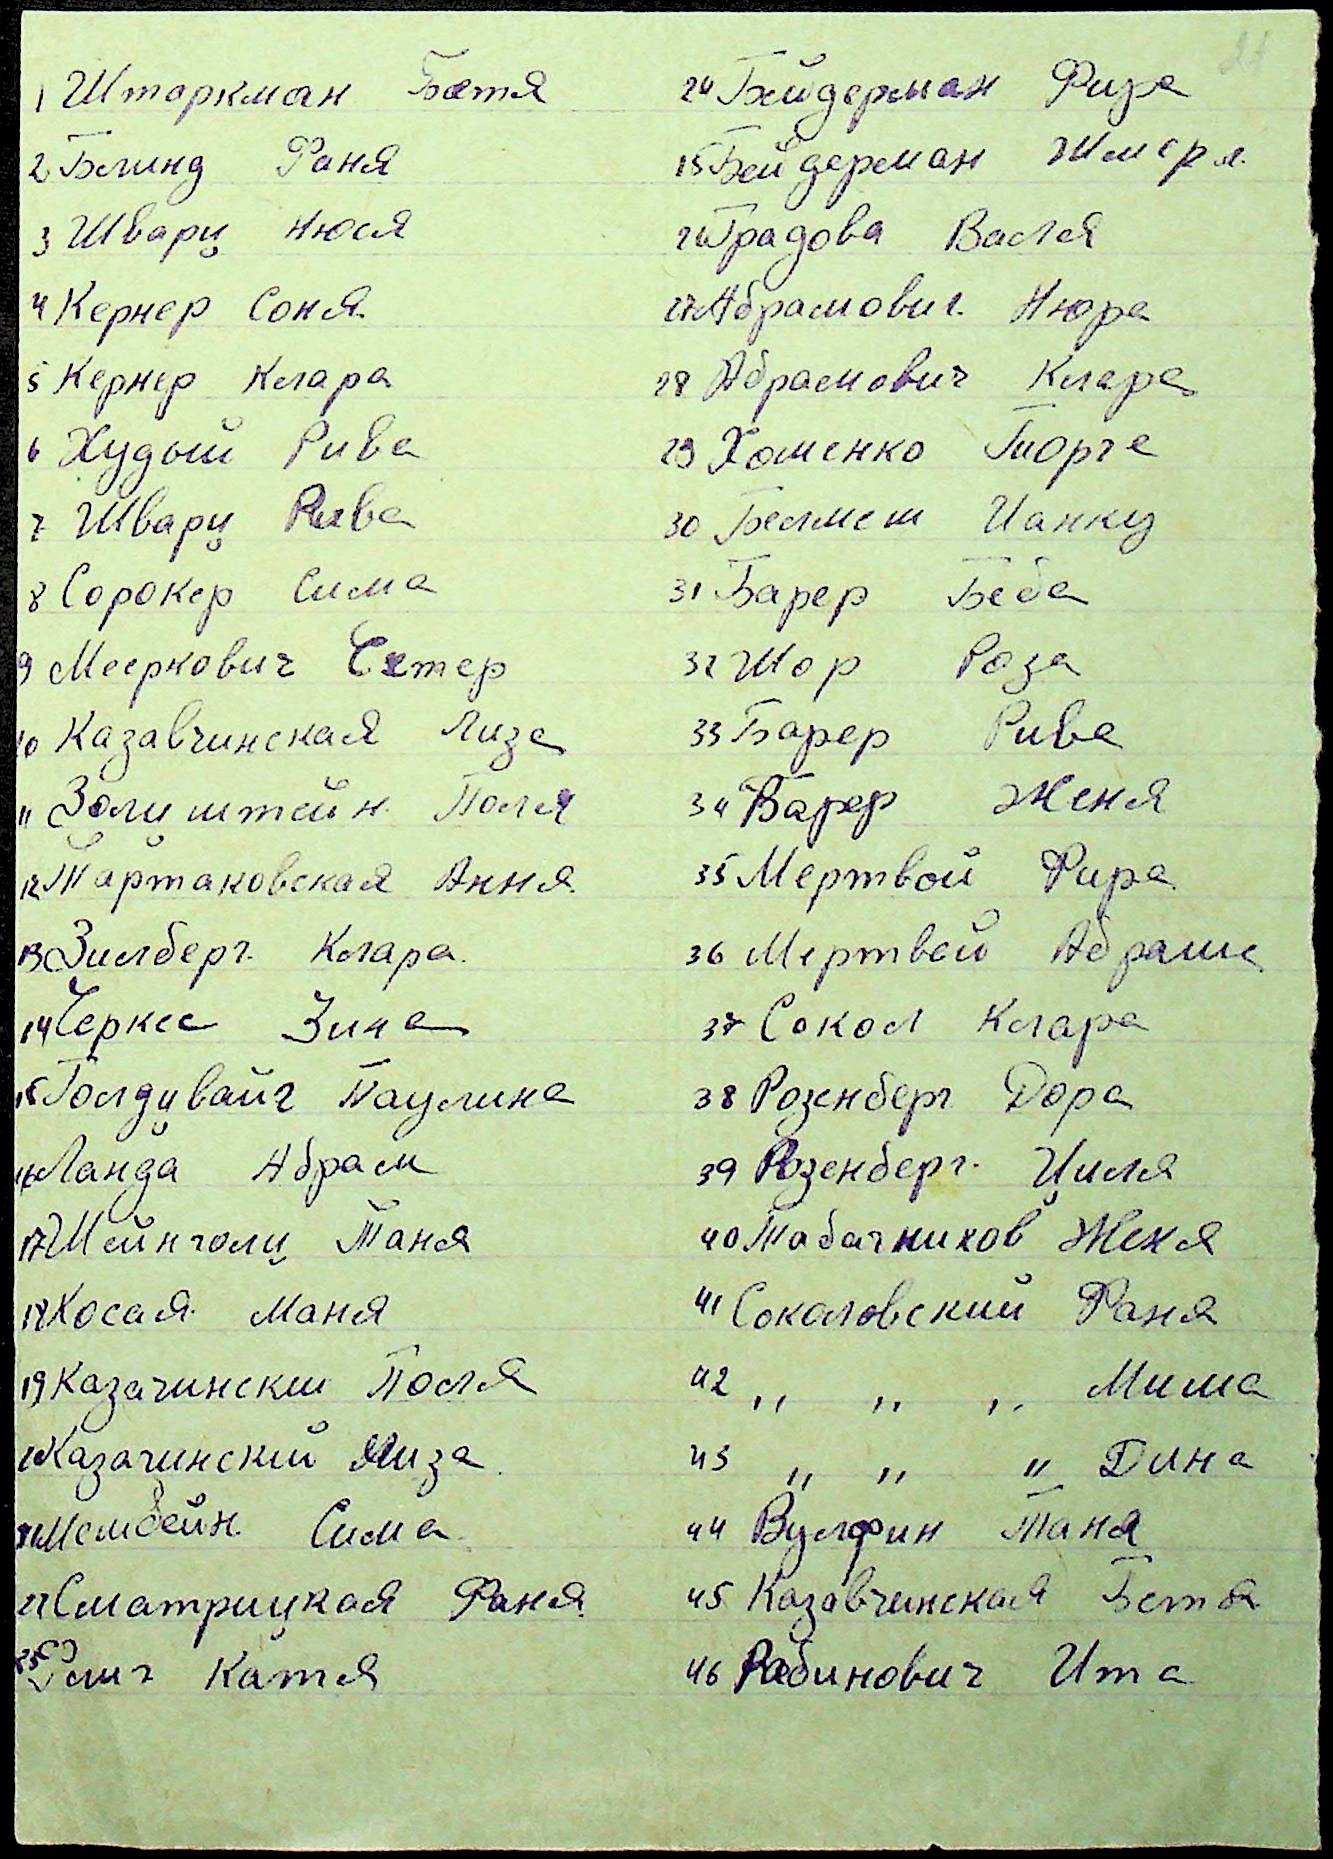 1 Штаркман Бетя
2 Блинд Фаня
3 Шварц Нюся
4 Кернер Соня
5 Кернер Клара
6 Худый Рива
7 Шварц Рива
8 Сорокер Сима
9 Мееркович Естер
10 Казавчинская Лиза
11 Золиштейн Поля
12 Тартаковская Ання
13 Зилберг Клара
14 Черкес Зина
15 Голдцвайг Паулина
16 Ланда Абрам
17 Шейнголц Таня
18 Косая Маня
19 Казачински Поля
20 Казачинский Лиза
21 Сима
22 Сматрицкая Фаня
23 Катя
24 Бейдерман Фира
25 Бейдерман Шмеря
26 Градова Вася
27 Абрамович Нюра
28 Абрамович Клара
29 Хоменко Георге
30 БелмешИанку
31 Барер Беба
32 Шор Роза
33 Барер Рива
34 Барер Женя
35 Мертвой Фира
36 Мертвой Абраша
37 Сокол Клара
38 Розенберг Дора
39 Розенберг Циля
40 Табачников Женя
41 Соколовский Фаня
42 " " " Миша
43 " " " Дина
44 Вулфин Таня
45 Казавчинская Бетя
46 Рабинович Ита